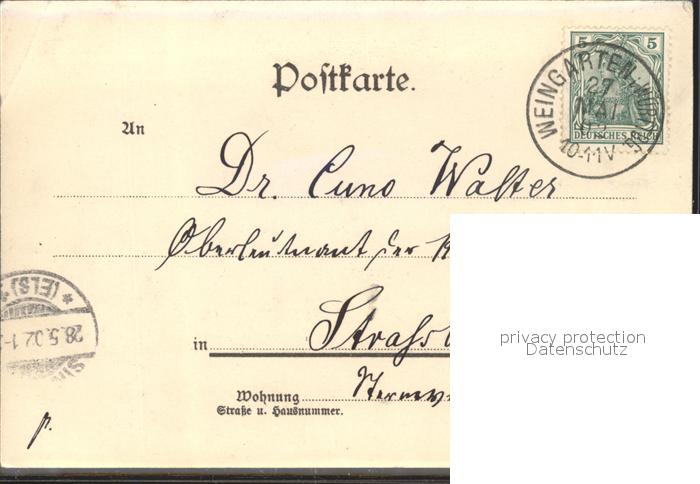 Postkarte.
5 5
WEINGARTEN
27
MAI
DEUTSCHES REICH
10-11V
An
Dr. Cuno Walter
Oberleutnant der
(ELS)
28.5.02.1-
in Strassb
privacy protection
Datenschutz
Wohnung
Straße u. Hausnummer.
p.